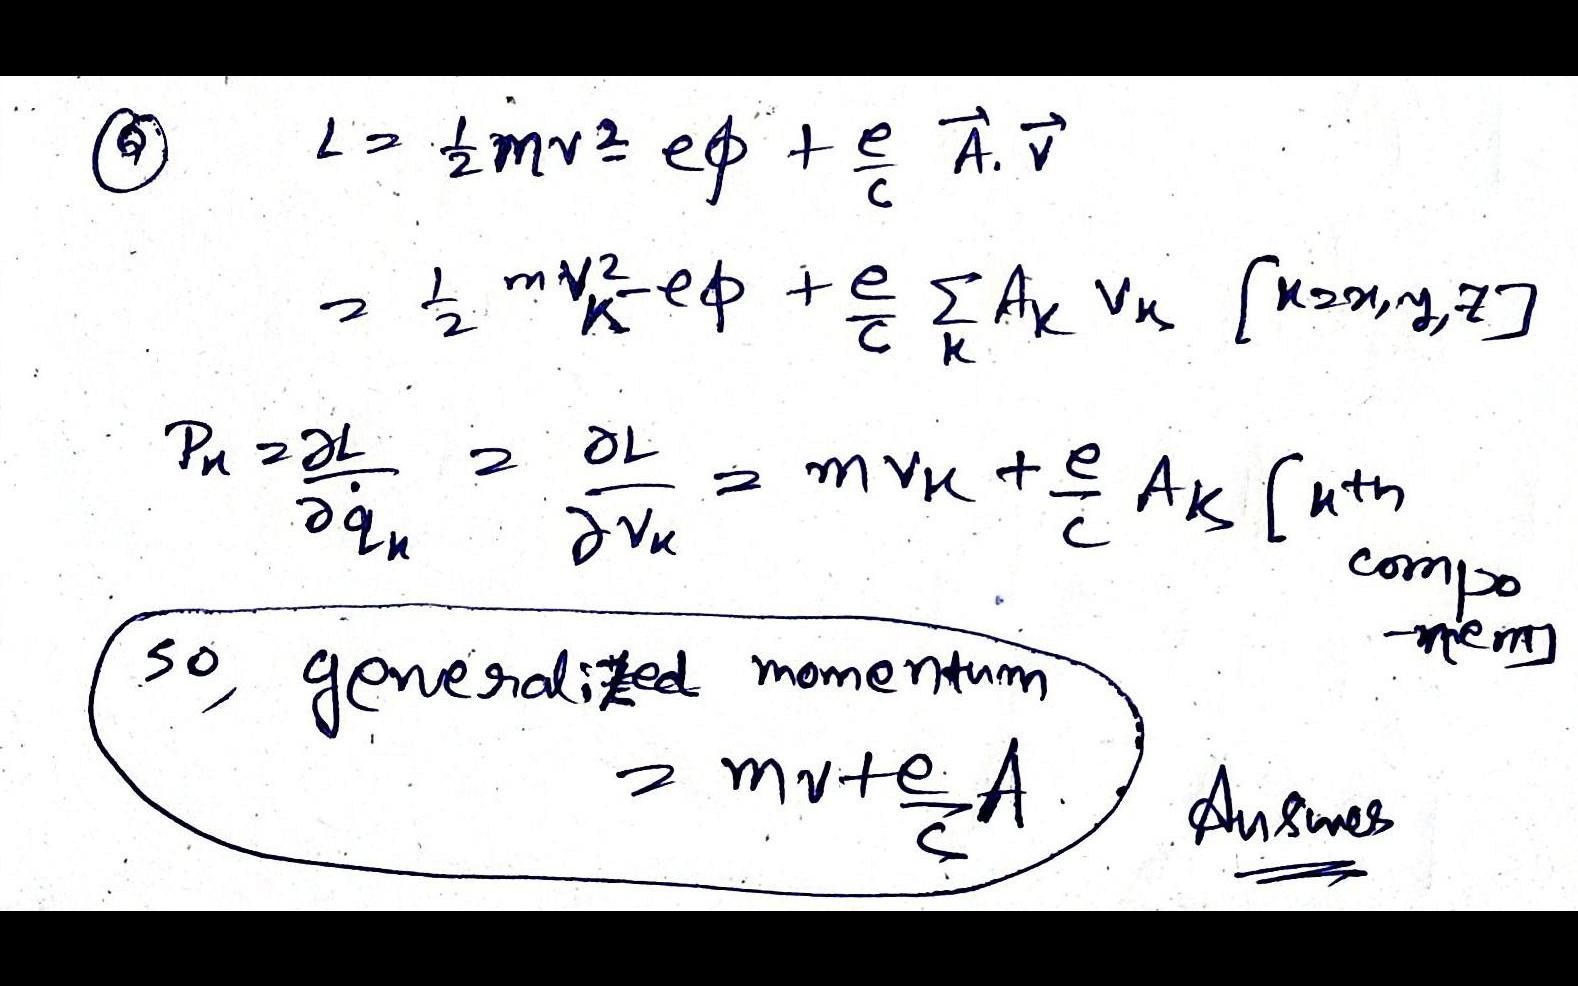 Q L = 1/2 mv² - eφ + e/c A⃗. v⃗
= 1/2 mv_k² - eφ + e/c Σ_k A_k v_k [k = x, y, z]
P_k = ∂L/∂q̇_k = ∂L/∂v_k = mv_k + e/c A_k [kth
compo
-nent]
so, generalized momentum
= mv + e/c A
Answer